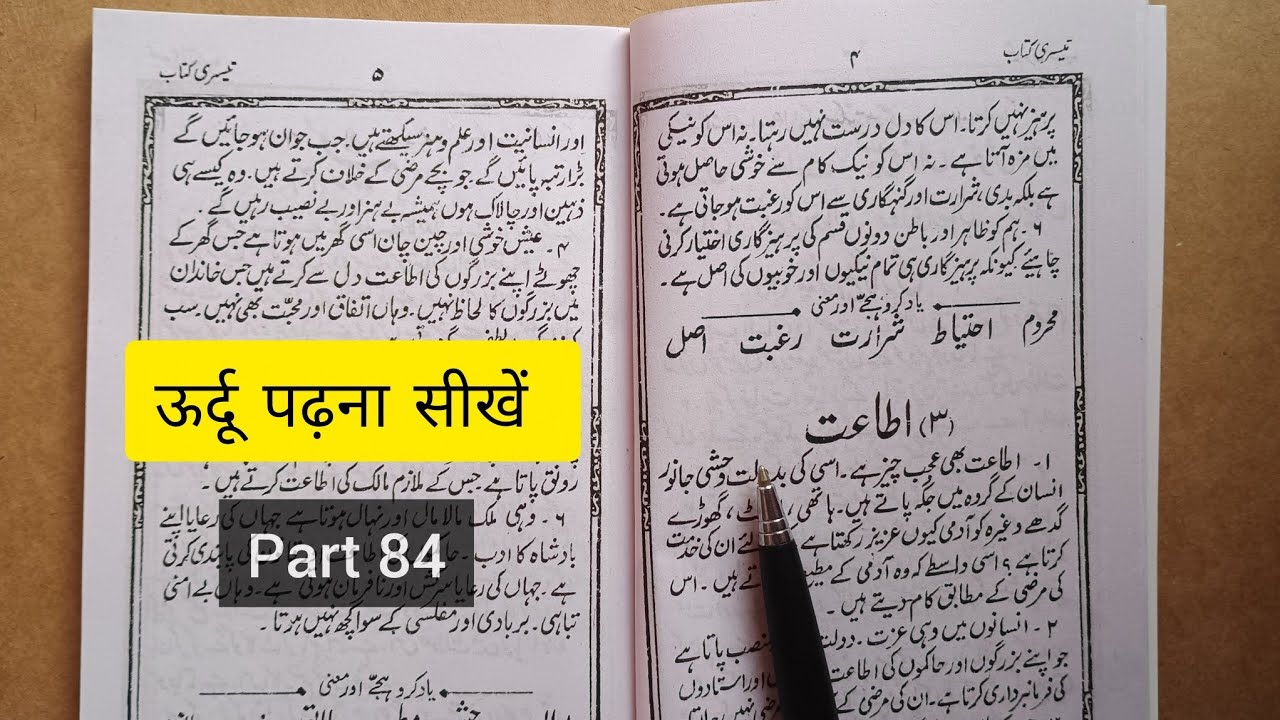 تیسری کتاب
۴
پرہیز نہیں کرتا۔ اس کا دل درست نہیں رہتا۔ نہ اس کو نیکی
میں مزہ آتا ہے۔ نہ اس کو نیک کام سے خوشی حاصل ہوتی
ہے بلکہ بدی، شرارت اور گنہگاری سے اس کو رغبت ہو جاتی ہے۔
۶۔ ہم کو ظاہر اور باطن دونوں قسم کی پرہیزگاری اختیار کرنی
چاہیئے کیونکہ پرہیزگاری ہی تمام نیکیوں اور خوبیوں کی اصل ہے۔
یاد کرو ہجّے اور معنی
محروم احتیاط شرارت رغبت اصل
(۳) اطاعت
۱۔ اطاعت بھی عجب چیز ہے۔ اسی کی وحشی جانور
انسان کے گروہ میں جگہ پاتے ہیں۔ ہاتھی، گھوڑے
گدھے وغیرہ کو آدمی کیوں عزیز رکھتا ہے ان کی خدمت
کرتا ہے؟ اسی واسطے کہ وہ آدمی کے ہیں۔ اس
کی مرضی کے مطابق کام دیتے ہیں۔
۲۔ انسانوں میں وہی عزت۔ دولت پاتا ہے
جو اپنے بزرگوں اور حاکموں کی اطاعت
کی فرمانبرداری کرتا ہے۔ ان کی مرضی کے
تیسری کتاب
۵
اور انسانیت اور علم و ہنر سیکھتے ہیں۔ جب جوان ہو جائیں گے
بڑا رتبہ پائیں گے۔ جو بچے مرضی کے خلاف کرتے ہیں۔ وہ کیسے ہی
ذہین اور چالاک ہوں ہمیشہ بے ہنر اور بے نصیب رہیں گے۔
۴۔ عیش خوشی اور چین چان اسی گھر میں ہوتا ہے جس گھر کے
چھوٹے اپنے بزرگوں کی اطاعت دل سے کرتے ہیں جس خاندان
میں بزرگوں کا لحاظ نہیں۔ وہاں اتفاق اور محبّت بھی نہیں۔ سب
ऊर्दू पढ़ना सीखें
رونق پاتا ہے جس کے ملازم مالک کی اطاعت کرتے ہیں۔
۶۔ وہی ملک مالا مال اور نہال ہوتا ہے جہاں کی رعایا اپنے
بادشاہ کا ادب۔ کی پابندی کرتی
ہے۔ جہاں کی رعایا سرکش اور نافرمان ہوتی ہے۔ وہاں بے امنی
تباہی۔ بربادی اور مفلسی کے سوا کچھ نہیں ہوتا۔
Part 84
یاد کرو ہجّے اور معنی